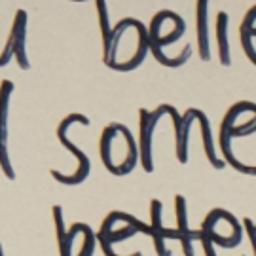 belie
some
bette